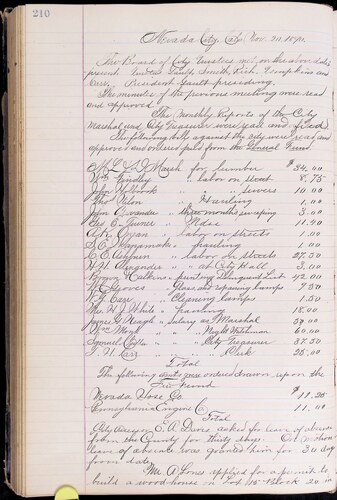 210
Nevada City, Cal. Nov. 20, 189
The Board of City Trustees met on the above date
present Trustees Gault, Smith, Rich, Tompkins and
Carr, President Gault presiding.
The minutes of the previous meeting were read
and approved
The Monthly Reports of the City
Marshal and City Treasurer were read and filed.
The following bills against the City were read and
approved and ordered paid from the General Fund
& D. Marsh for lumber $34.00
Wm labor on street 8.75
John " " sewers 10.00
Hauling 1.00
John three months sweeping 3.00
Geo. E. Turner " Hdse 11.90
A.R. labor on streets 1.00
hauling 1.00
C.E. Ashburn " labor on streets 27.50
H.H. Alexander " " at City Hall 3.00
Brown & Calkins " printing Delinquent List 42.00
W.C. Groves " Glass and repairing lamps 9.50
V.G. Carr " Cleaning lamps 1.50
Mrs. H.J. White " hauling 18.00
James G. Neagle " Salary as Marshal
Wm Monk " " " Night Watchman 60.00
Samuel " " City Treasurer 37.50
T.H. Carr " " Clerk 25.00
Total
The following were ordered drawn upon the
Fire Fund
Nevada Hose Co $11.25
Pennsylvania Engine Co 11.00
Total
City Assessor E.A. Davis asked for leave of absence
from the County for thirty days. On motion
leave of absence was granted him for 30 days
from date.
Mr. A. Jones applied for a permit to
build a woodhouse on Lot Block 20 in